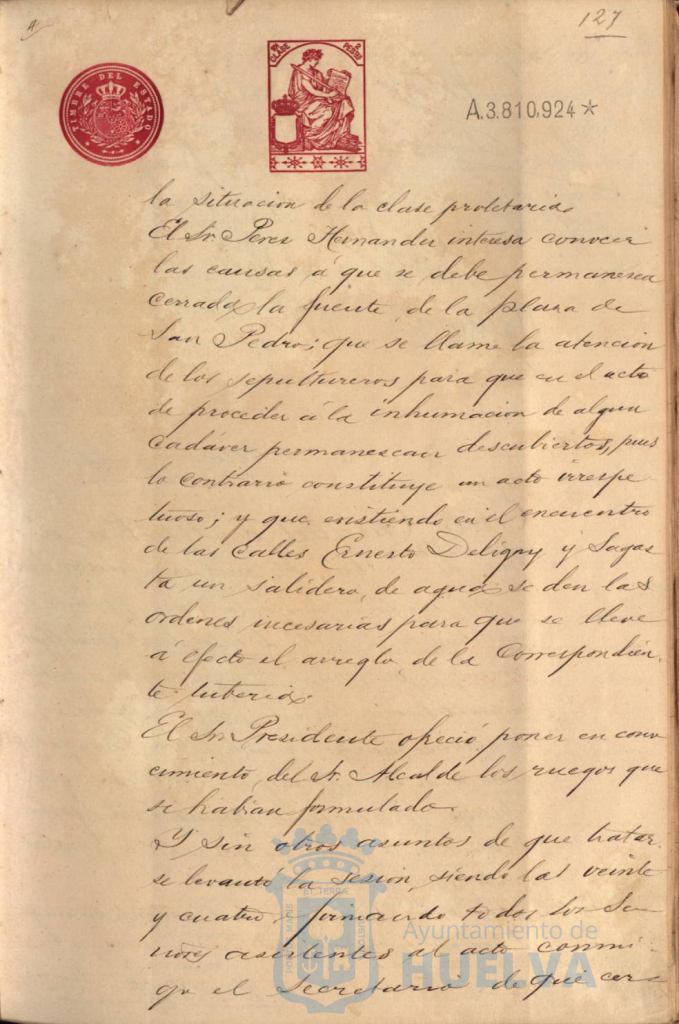 127
TIMBRE DEL ESTADO
CLASE
2
PESETAS
A.3.810,924*
la situacion de la clase proletaria.
El Sr. Perez Hernandez interesa conocer
las causas á que se debe permanezca
cerrada la fuente de la plaza de
San Pedro; que se llame la atencion
de los sepultureros para que en el acto
de proceder á la inhumacion de algun
cadáver permanezcan descubiertos, pues
lo contrario constituye un acto irrespe
tuoso; y que existiendo en el encuentro
de las calles Ernesto Deligny y Sagas
ta un salidero de agua se den las
ordenes necesarias para que se lleve
á efecto el arreglo de la correspondien
te tuberia.
El Sr. Presidente ofreció poner en cono
cimiento del Sr. Alcalde los ruegos que
se habian formulado.
Y sin otros asuntos de que tratar
se levantó la sesion, siendo las veinte
y cuatro firmando todos los Se-
ñores asistentes al acto conmi-
go el Secretario de que cer-
Ayuntamiento de
HUELVA